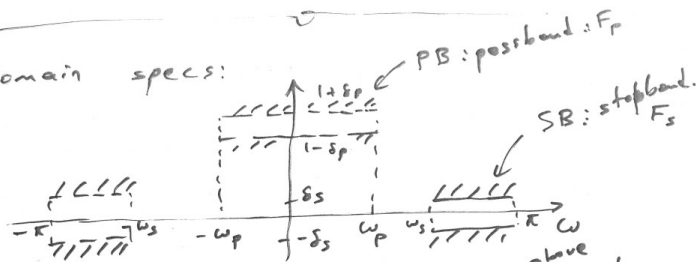 omain specs:
PB: passband: Fp
1+δp
SB: stopband.
Fs
1-δp
δs
-π
ωs
-ωp
-δs
ωp
ωs
π
ω
above